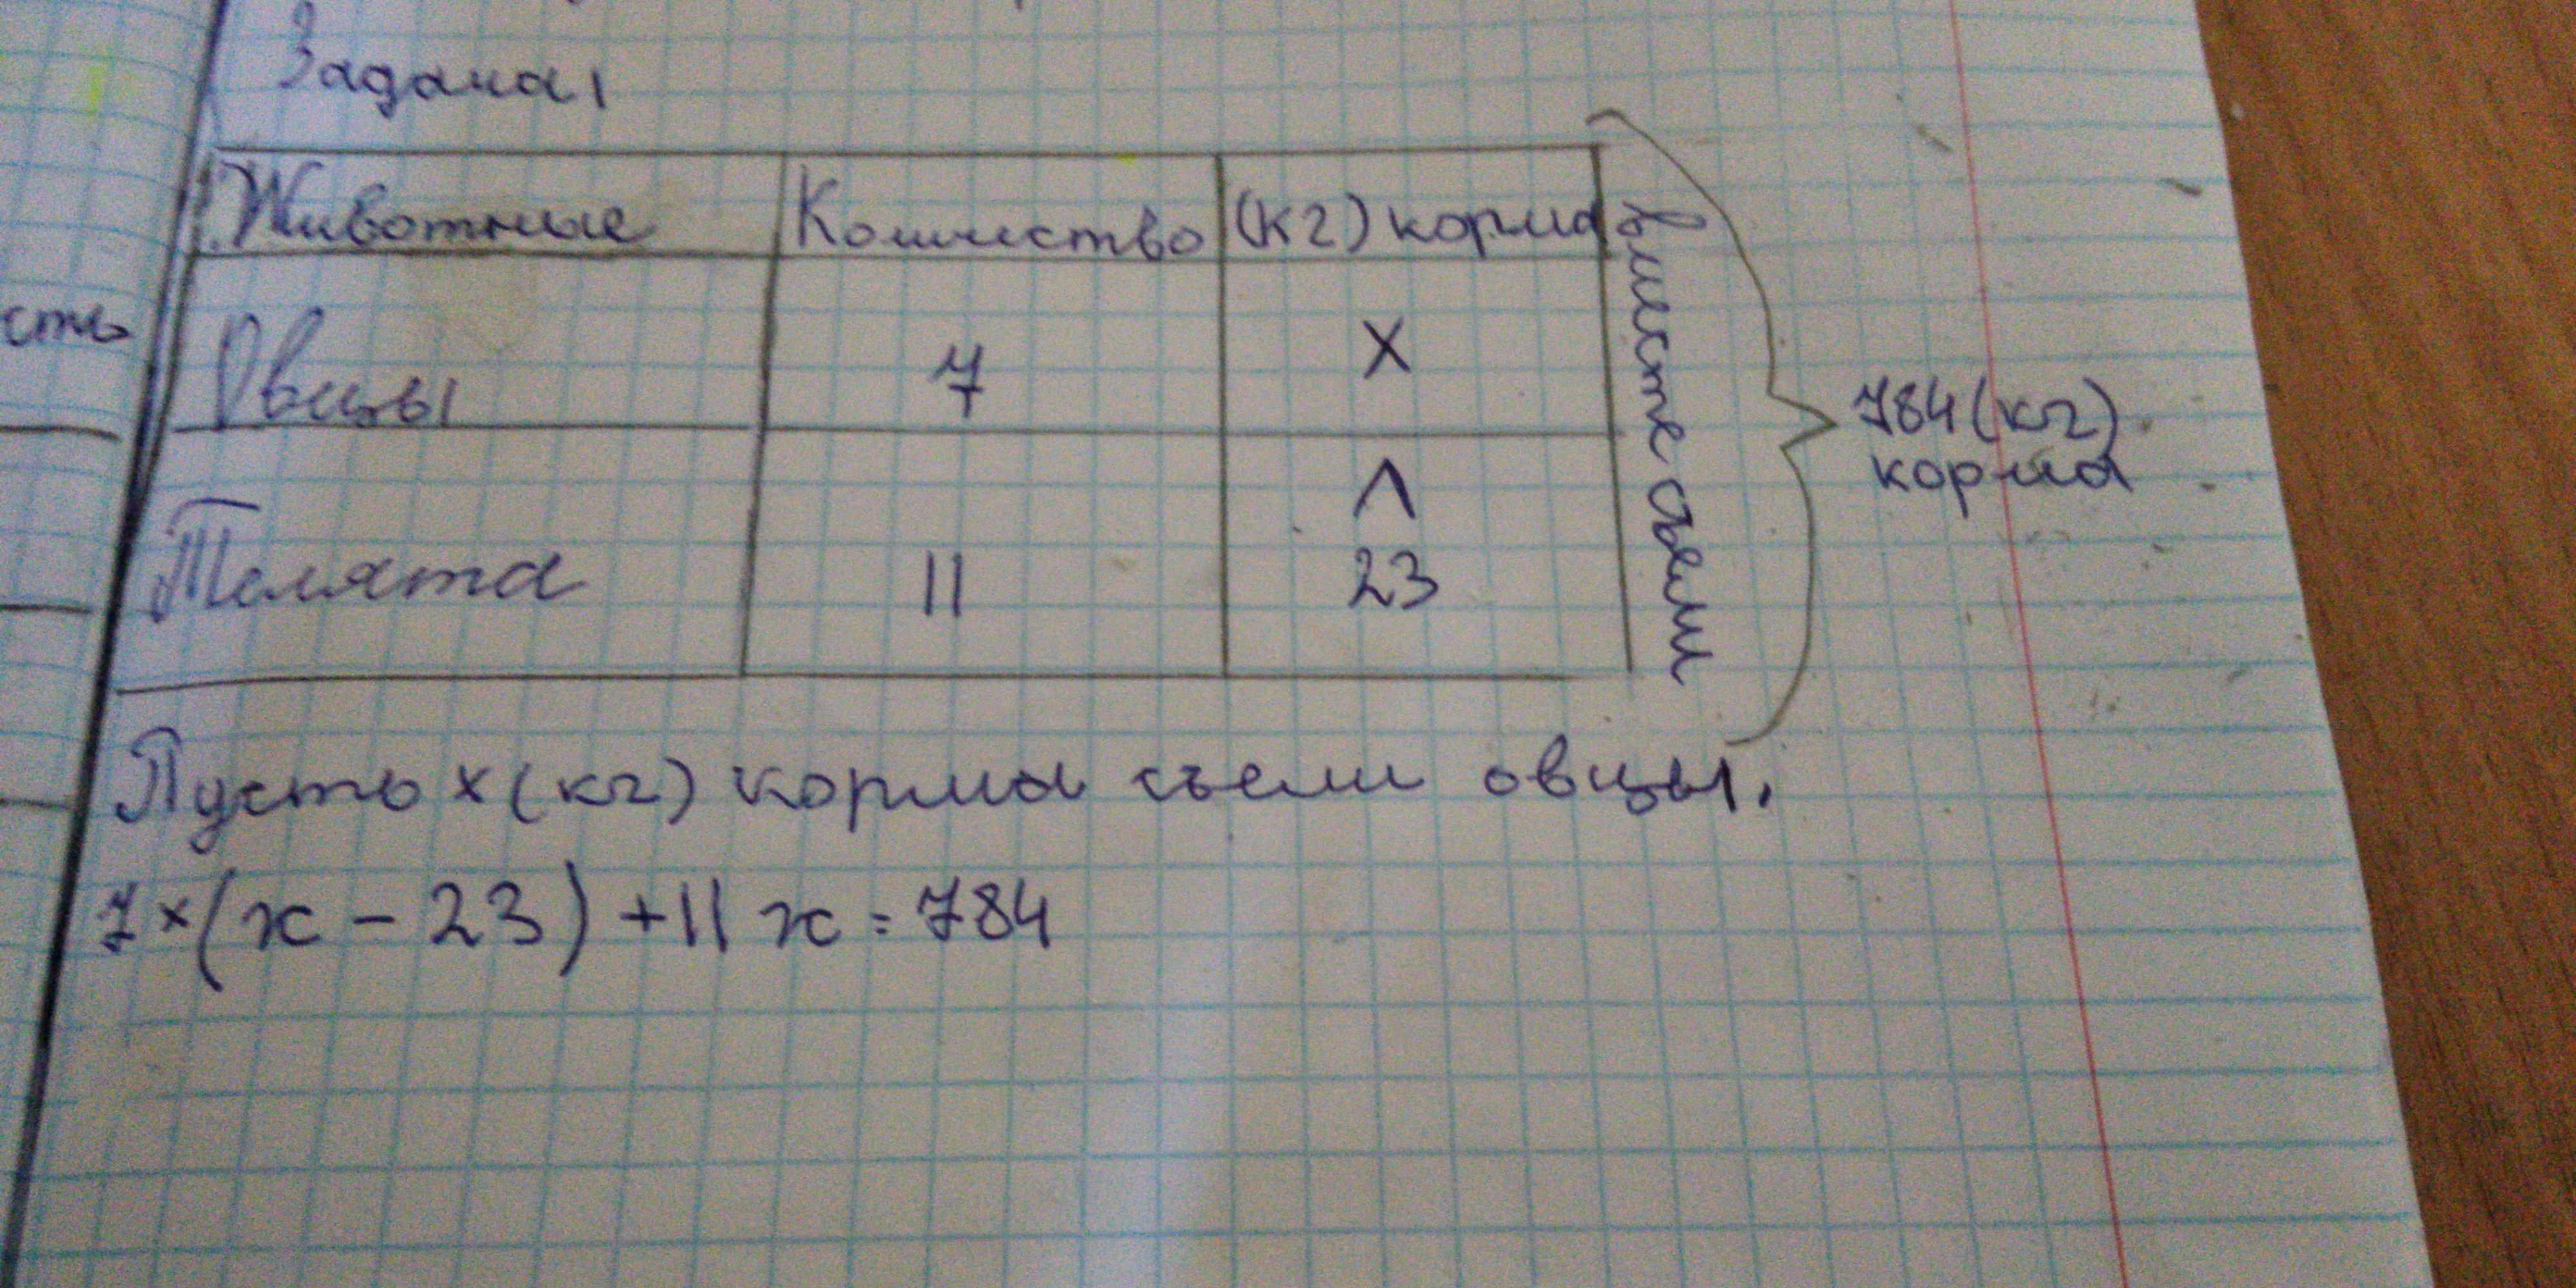 Задача 1
Животные Количество (кг) корма
Овцы 7 X
Телята 11 ^
23
Вместе съели
784 (кг)
корма
сть
Пусть x (кг) корма съели овцы.
7×(x - 23) + 11 x = 784